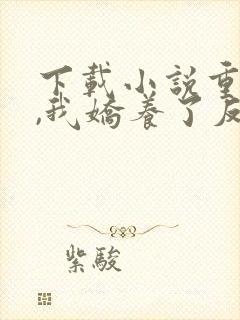 下載小說重
,我嬌養了反
紫駿